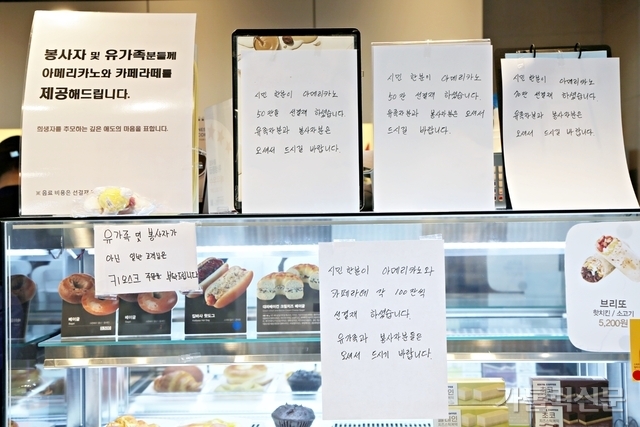 봉사자 및 유가족분들께
아메리카노와 카페라떼를
제공해드립니다.
희생자를 추모하는 깊은 애도의 마음을 표합니다.
※ 음료 비용은 선결제
시민 한분이 아메리카노
50만 선결재 하셨습니다.
유족분과 봉사자분은
오셔서 드시길 바랍니다.
시민 한분이 아메리카노
50만 선결재 하셨습니다.
유족분과 봉사자분은 오셔서
드시길 바랍니다.
시민 한분이 아메리카노
선결재 하셨습니다.
유족분과 봉사자분은
오셔서 드시길 바랍니다.
유가족 및 봉사자가
아닌 일반 고객님은
키오스크 주문 부탁드립니다
시민 한분이 아메리카노와
카페라떼 각 100만씩
선결재 하셨습니다.
유가족과 봉사자분들은
오셔서 드시기 바랍니다.
베이글
베이글
브리또
핫치킨 / 소고기
5,200원
가톨릭신문